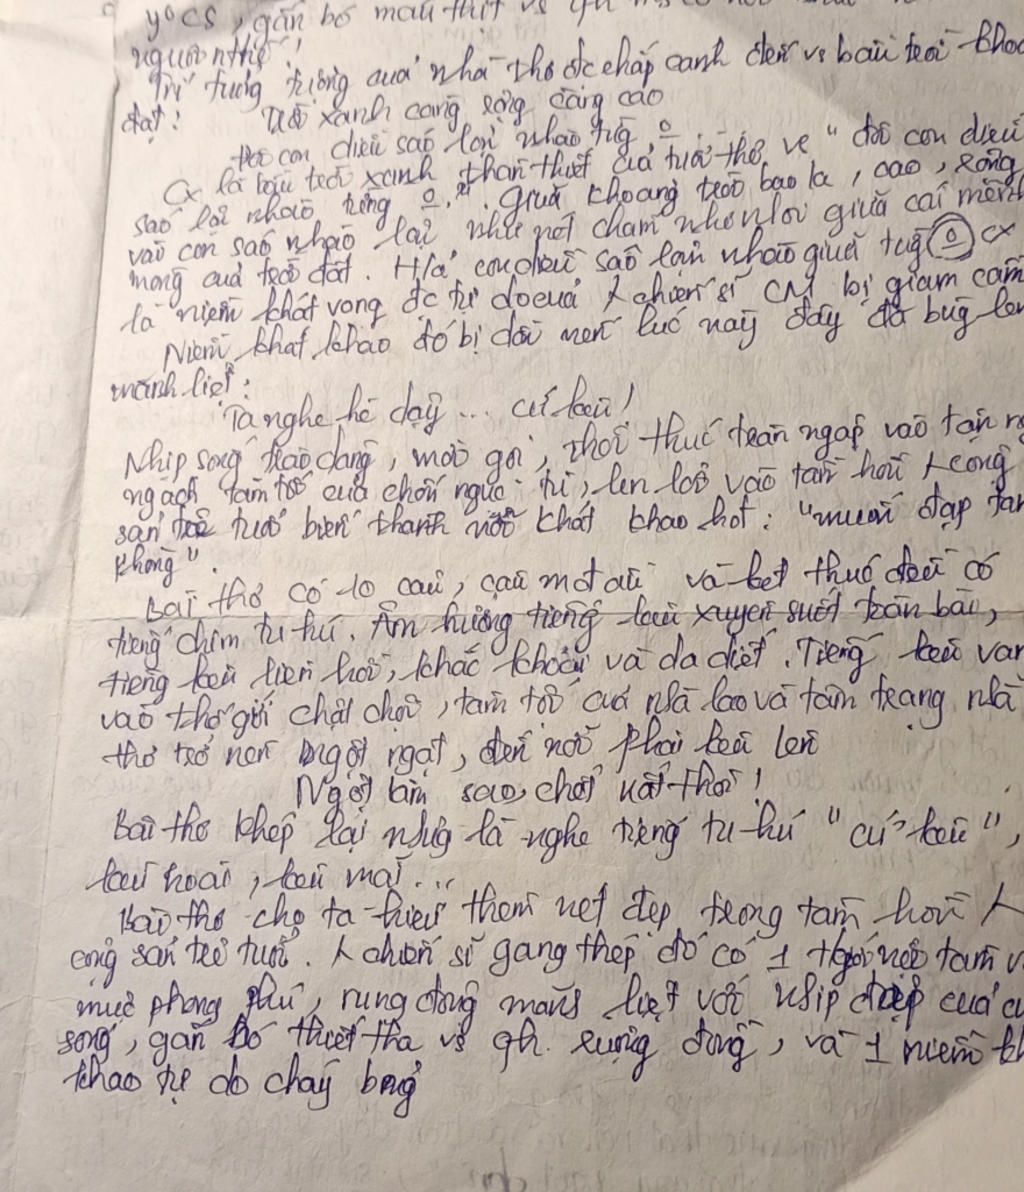 yêu cs, gắn bó máu thịt vs qh
người nthế!
Trí tưởng tượng của nhà thơ đc chắp cánh đến vs bầu trời
đạt: Trời xanh càng rộng càng cao
Đôi con diều sáo lộn nhào từng o
Cx là bầu trời xanh thân thiết của tuổi thơ, vs "đôi con diều
sáo lại nhào từng o". Giữa khoảng trời bao la, cao, rộng
vài con sáo nhào lại như nét chấm nhỏ nhoi giữa cái mênh
mông của trời đất. H/a' con diều sáo lộn nhào giữa từg o cx
là niềm khát vọng đc tự do của chiến sĩ CM bị giam cầm
Niềm khát khao đó bị dồn nén lúc này đây đã bùg lên
mãnh liệt:
"Ta nghe hè dậy ... cứ kêu!
Nhịp sống trào dâng, mời gọi, thôi thúc tràn ngập vào tận
ngách tăm tối của chốn ngục tù, len lỏi vào tâm hồn cộng
sản trẻ tuổi biến thành nỗi khát khao hot: "muốn đạp tan
phòng".
Bài thơ có 10 câu, câu mở đầu và kết thúc đều có
tiếng chim tu hú. Âm hưởng tiếng kêu xuyên suốt toàn bài,
tiếng kêu liên hồi, khắc khoải và da diết. Tiếng kêu van
vào thế giới chật chội, tăm tối của nhà lao và tâm trạng nhà
thơ trở nên ngột ngạt, đến nỗi phải kêu lên
Ngột làm sao, chết uất thôi!
Bài thơ khép lại nhưg là nghe tiếng tu hú "cứ kêu",
kêu hoài, kêu mãi...
Bài thơ cho ta hiểu thêm nét đẹp trong tâm hồn
cộng sản trẻ tuổi. chiến sĩ gang thép đó có 1 tgới nội tâm
mực phong phú, rung động mãnh liệt với nhịp đập của
sống, gắn bó thiết tha vs qh. ruộng đồng, và 1 niềm
khao tự do cháy bỏng